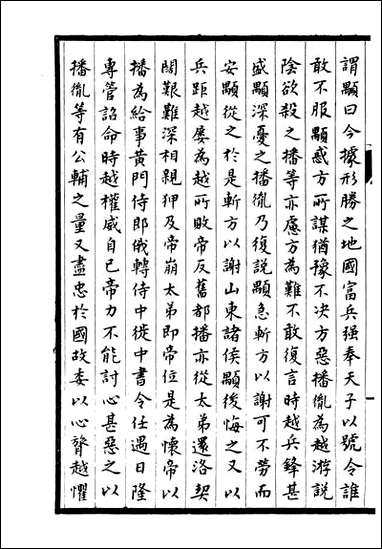 謂顒曰今據形勝之地國富兵强奉天子以號令誰
敢不服顒惑方所謀猶豫不决方惡播㣧為越游説
陰欲殺之播等亦慮方為難不敢復言時越兵鋒甚
盛顒深憂之播㣧乃復説顒急斬方以謝可不勞而
安顒從之於是斬方以謝山東諸侯顒後悔之又以
兵距越屢為越所敗帝反舊都播亦從太弟還洛契
闊艱難深相親狎及帝崩太弟即帝位是為懷帝以
播為給事黄門侍郎俄轉侍中徙中書令任遇日隆
專管詔命時越權威自己帝力不能討心甚惡之以
播㣧等有公輔之量又盡忠於國故委以心膂越懼